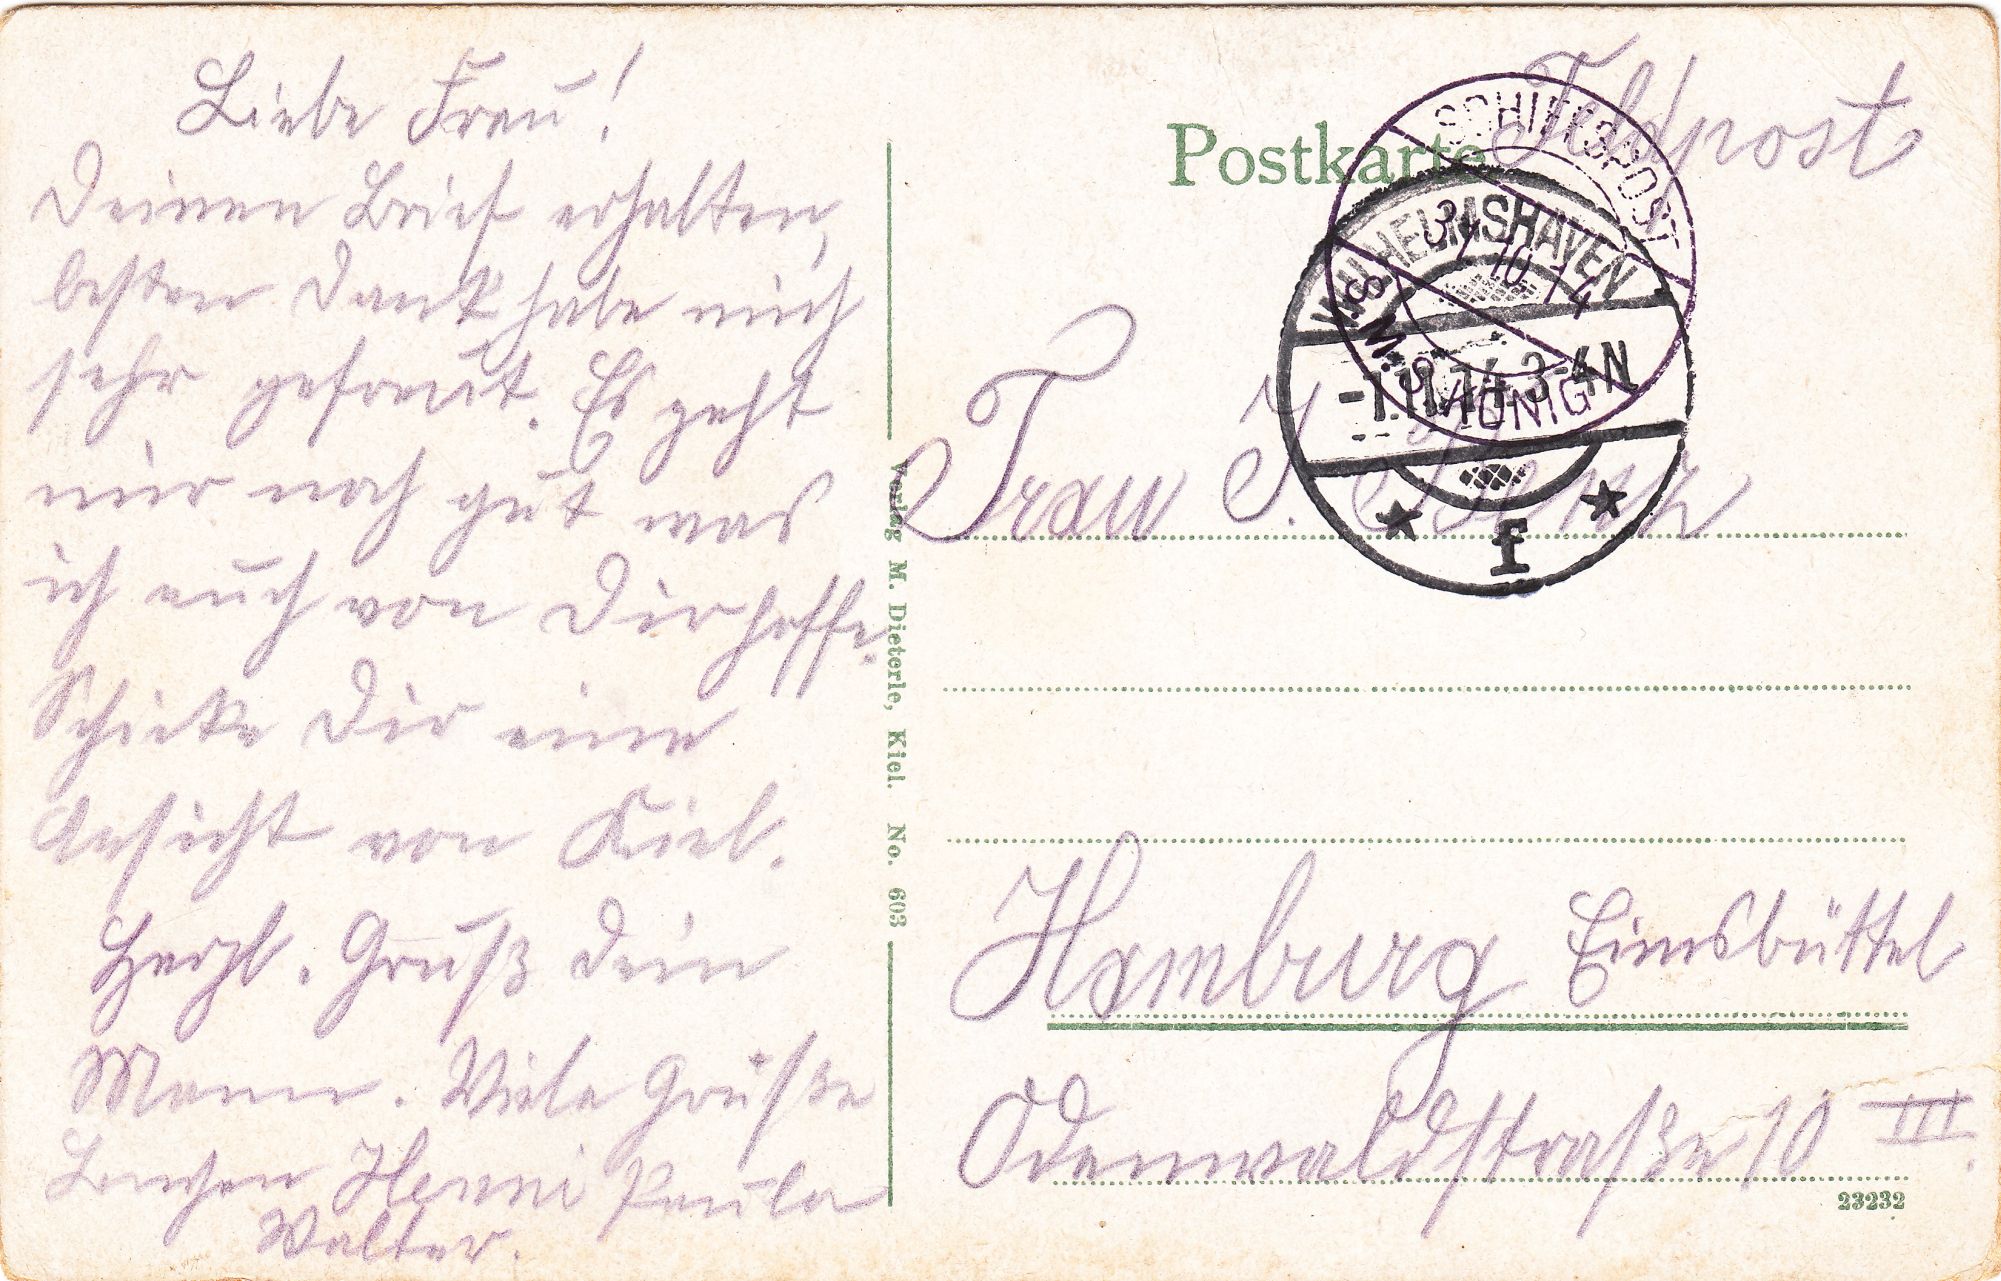 Liebe Frau!
Deinen Brief erhalten,
besten Dank habe mich
sehr gefreut. Es geht
mir noch gut was
ich auch von Dir hoffe.
Schicke Dir eine
Ansicht von Kiel.
Herzl. Gruß Dein
Mann. Viele Grüße
Henni Paula
Walter.
Verlag M. Dieterle, Kiel. No. 603
Postkarte
Feldpost
SCHIFFSPOST
31 10 14
S.M.S. KÖNIG
WILHELMSHAVEN
-1.11.14.3-4N
* f *
Frau J.
Hamburg Eimsbüttel
Odenwaldstraße 10 III.
23232